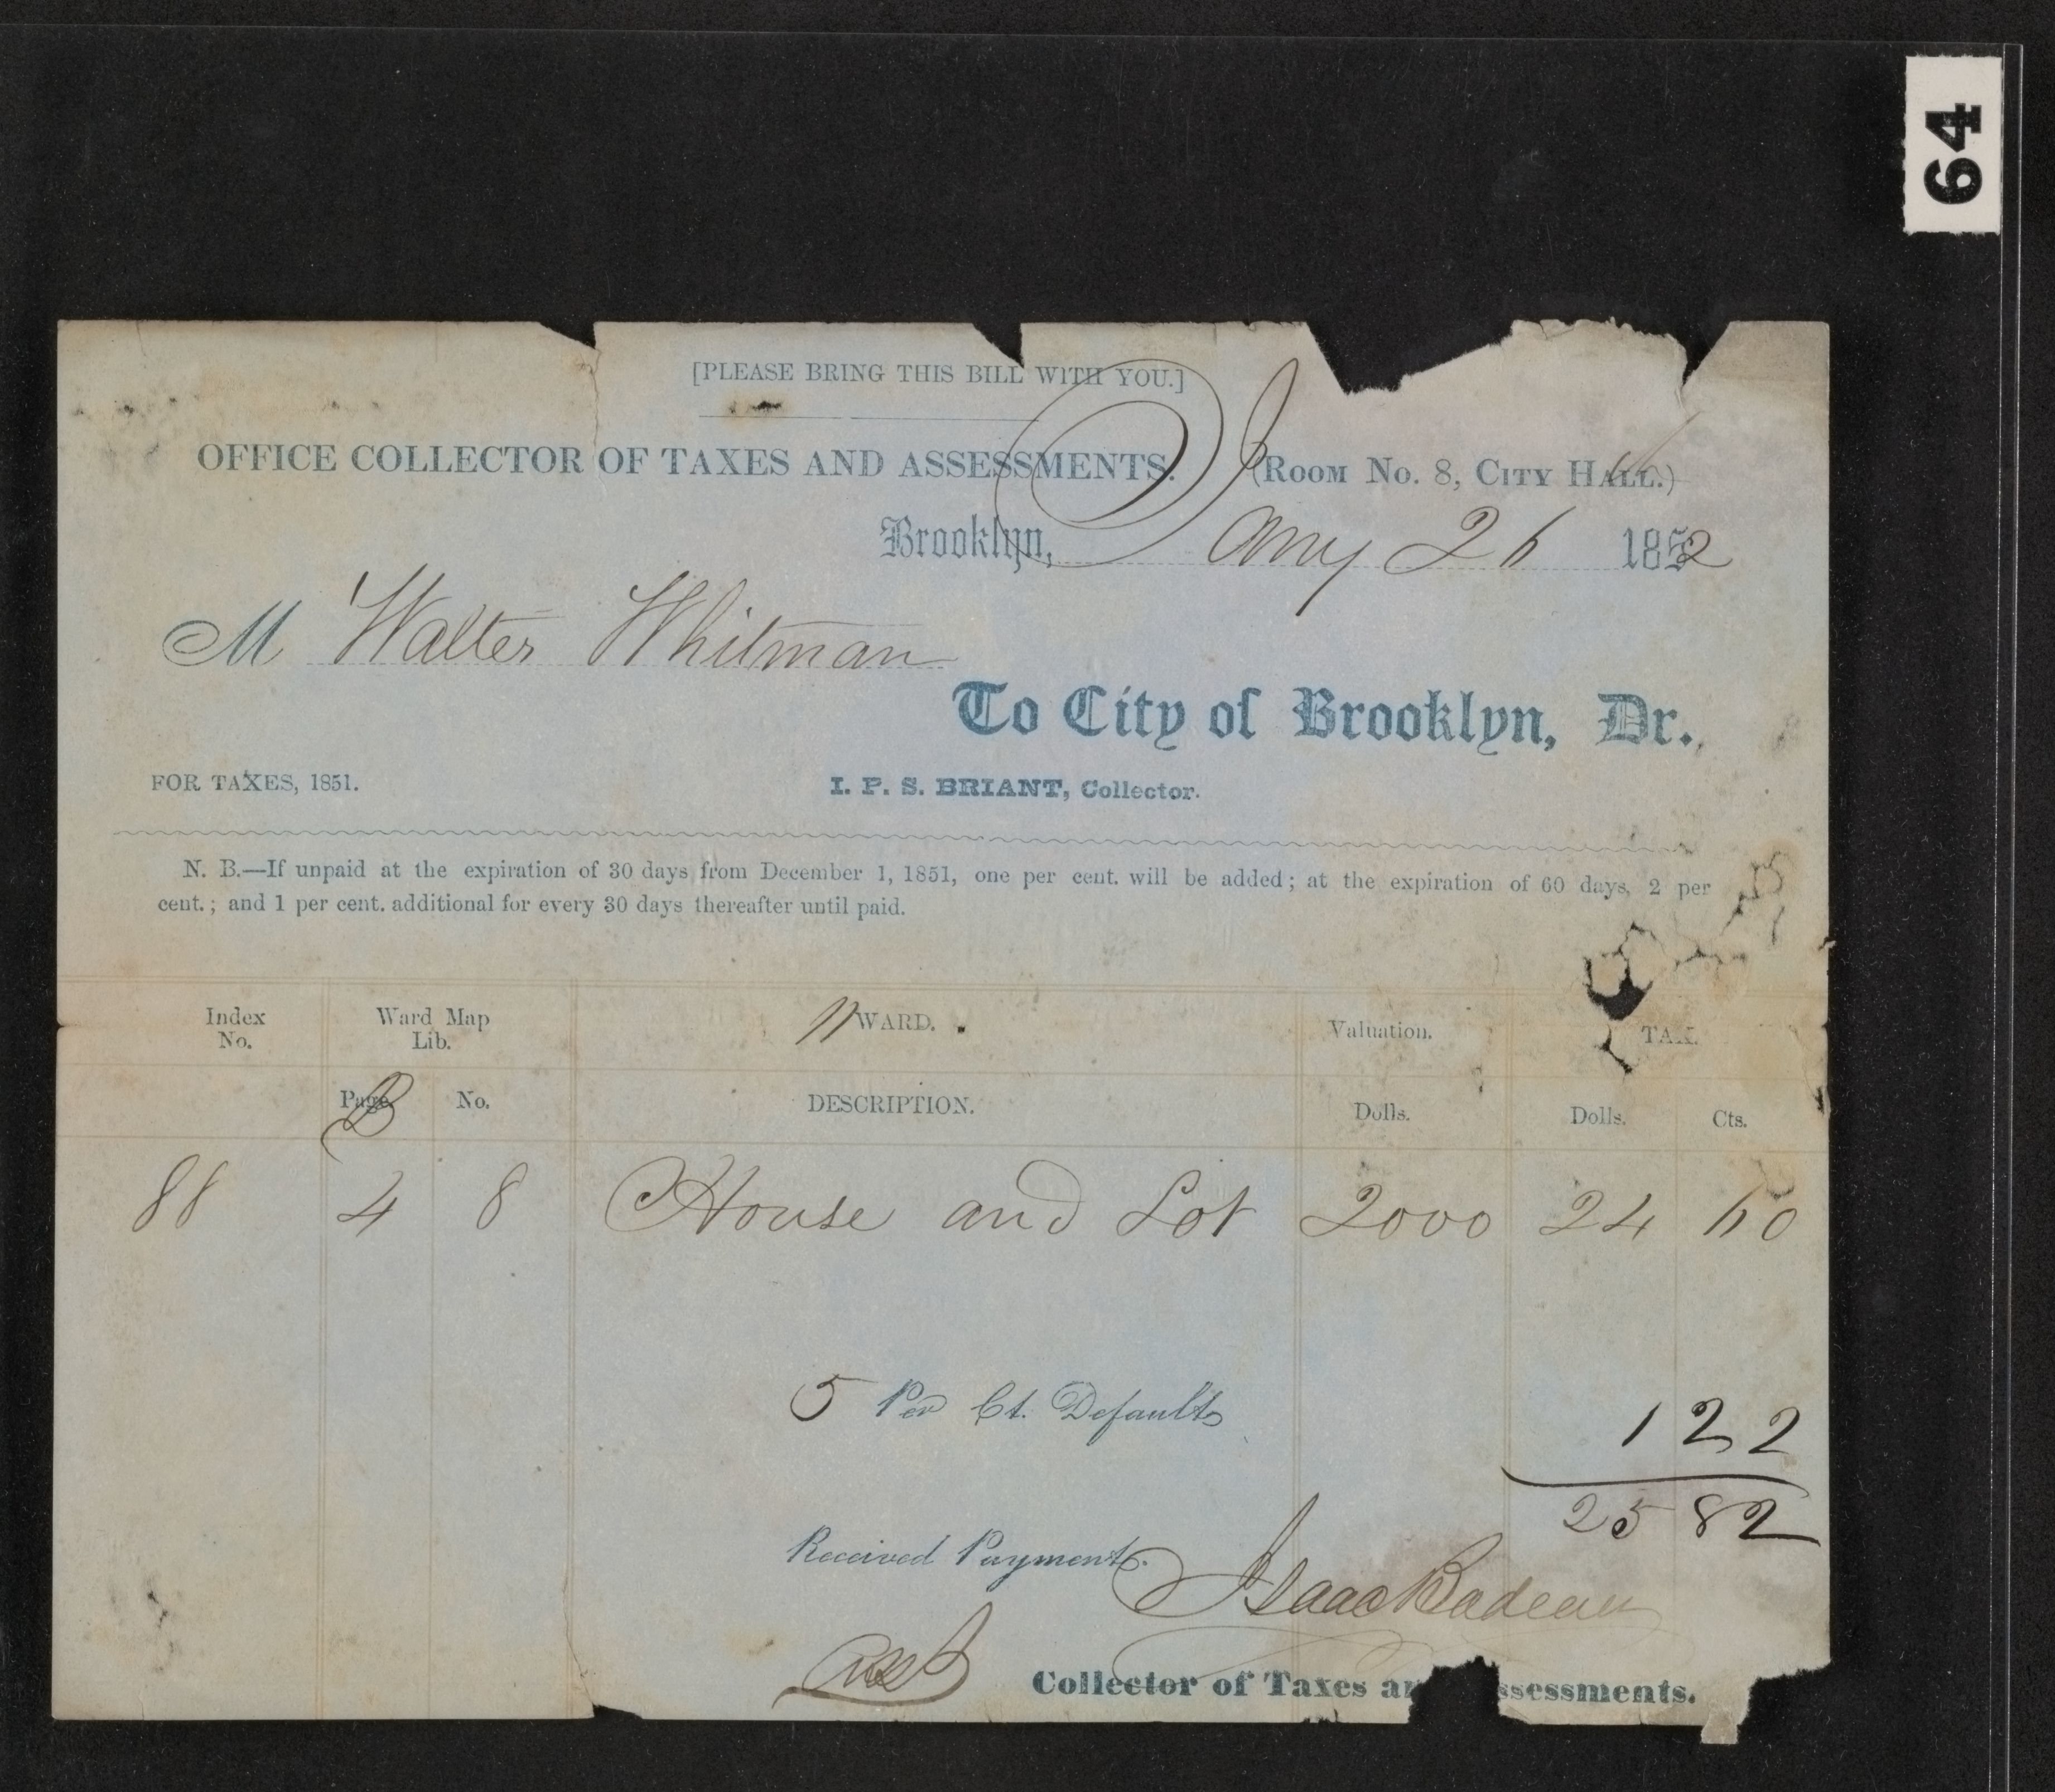 64
[PLEASE BRING THIS BILL WITH YOU.]
OFFICE COLLECTOR OF TAXES AND ASSESSMENTS. (ROOM No. 8, CITY HALL.)
Brooklyn, 26 1852
M Walter Whitman
To City of Brooklyn, Dr.
FOR TAXES, 1851. I. P. S. BRIANT, Collector.
N. B.—If unpaid at the expiration of 30 days from December 1, 1851, one per cent. will be added; at the expiration of 60 days, 2 per
cent.; and 1 per cent. additional for every 30 days thereafter until paid.
Index No. Ward Map Lib. 11 WARD. Valuation. TAX.
B
Page No. DESCRIPTION. Dolls. Dolls. Cts.
88 4 8 House and Lot 2000 24 60
5 Per Ct. Default 1 22
25 82
Received Payment. Isaac Badeau
Asst
Collector of Taxes and Assessments.